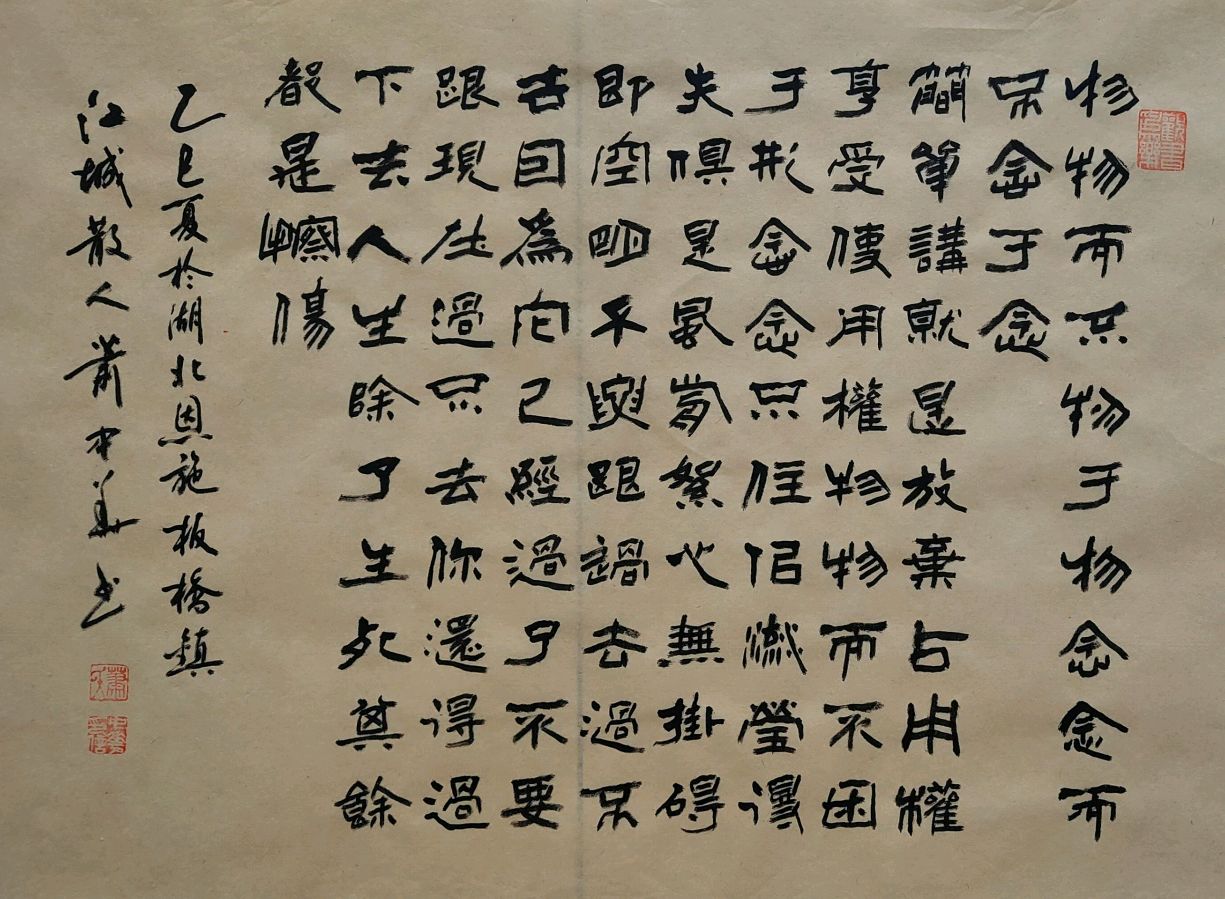 物物而不物于物念念而
不念于念
簡單講就是放棄占用權
享受使用權物物而不困
于形念念不住佀流瑩得
失俱是夢縈心無掛碍
即空明不與跟過去過不
去因為它已經過了不要
跟現在過不去你還得過
下去人生除了生死其餘
都是擦傷
乙巳夏於湖北恩施板橋鎮
江城散人蕭中華书